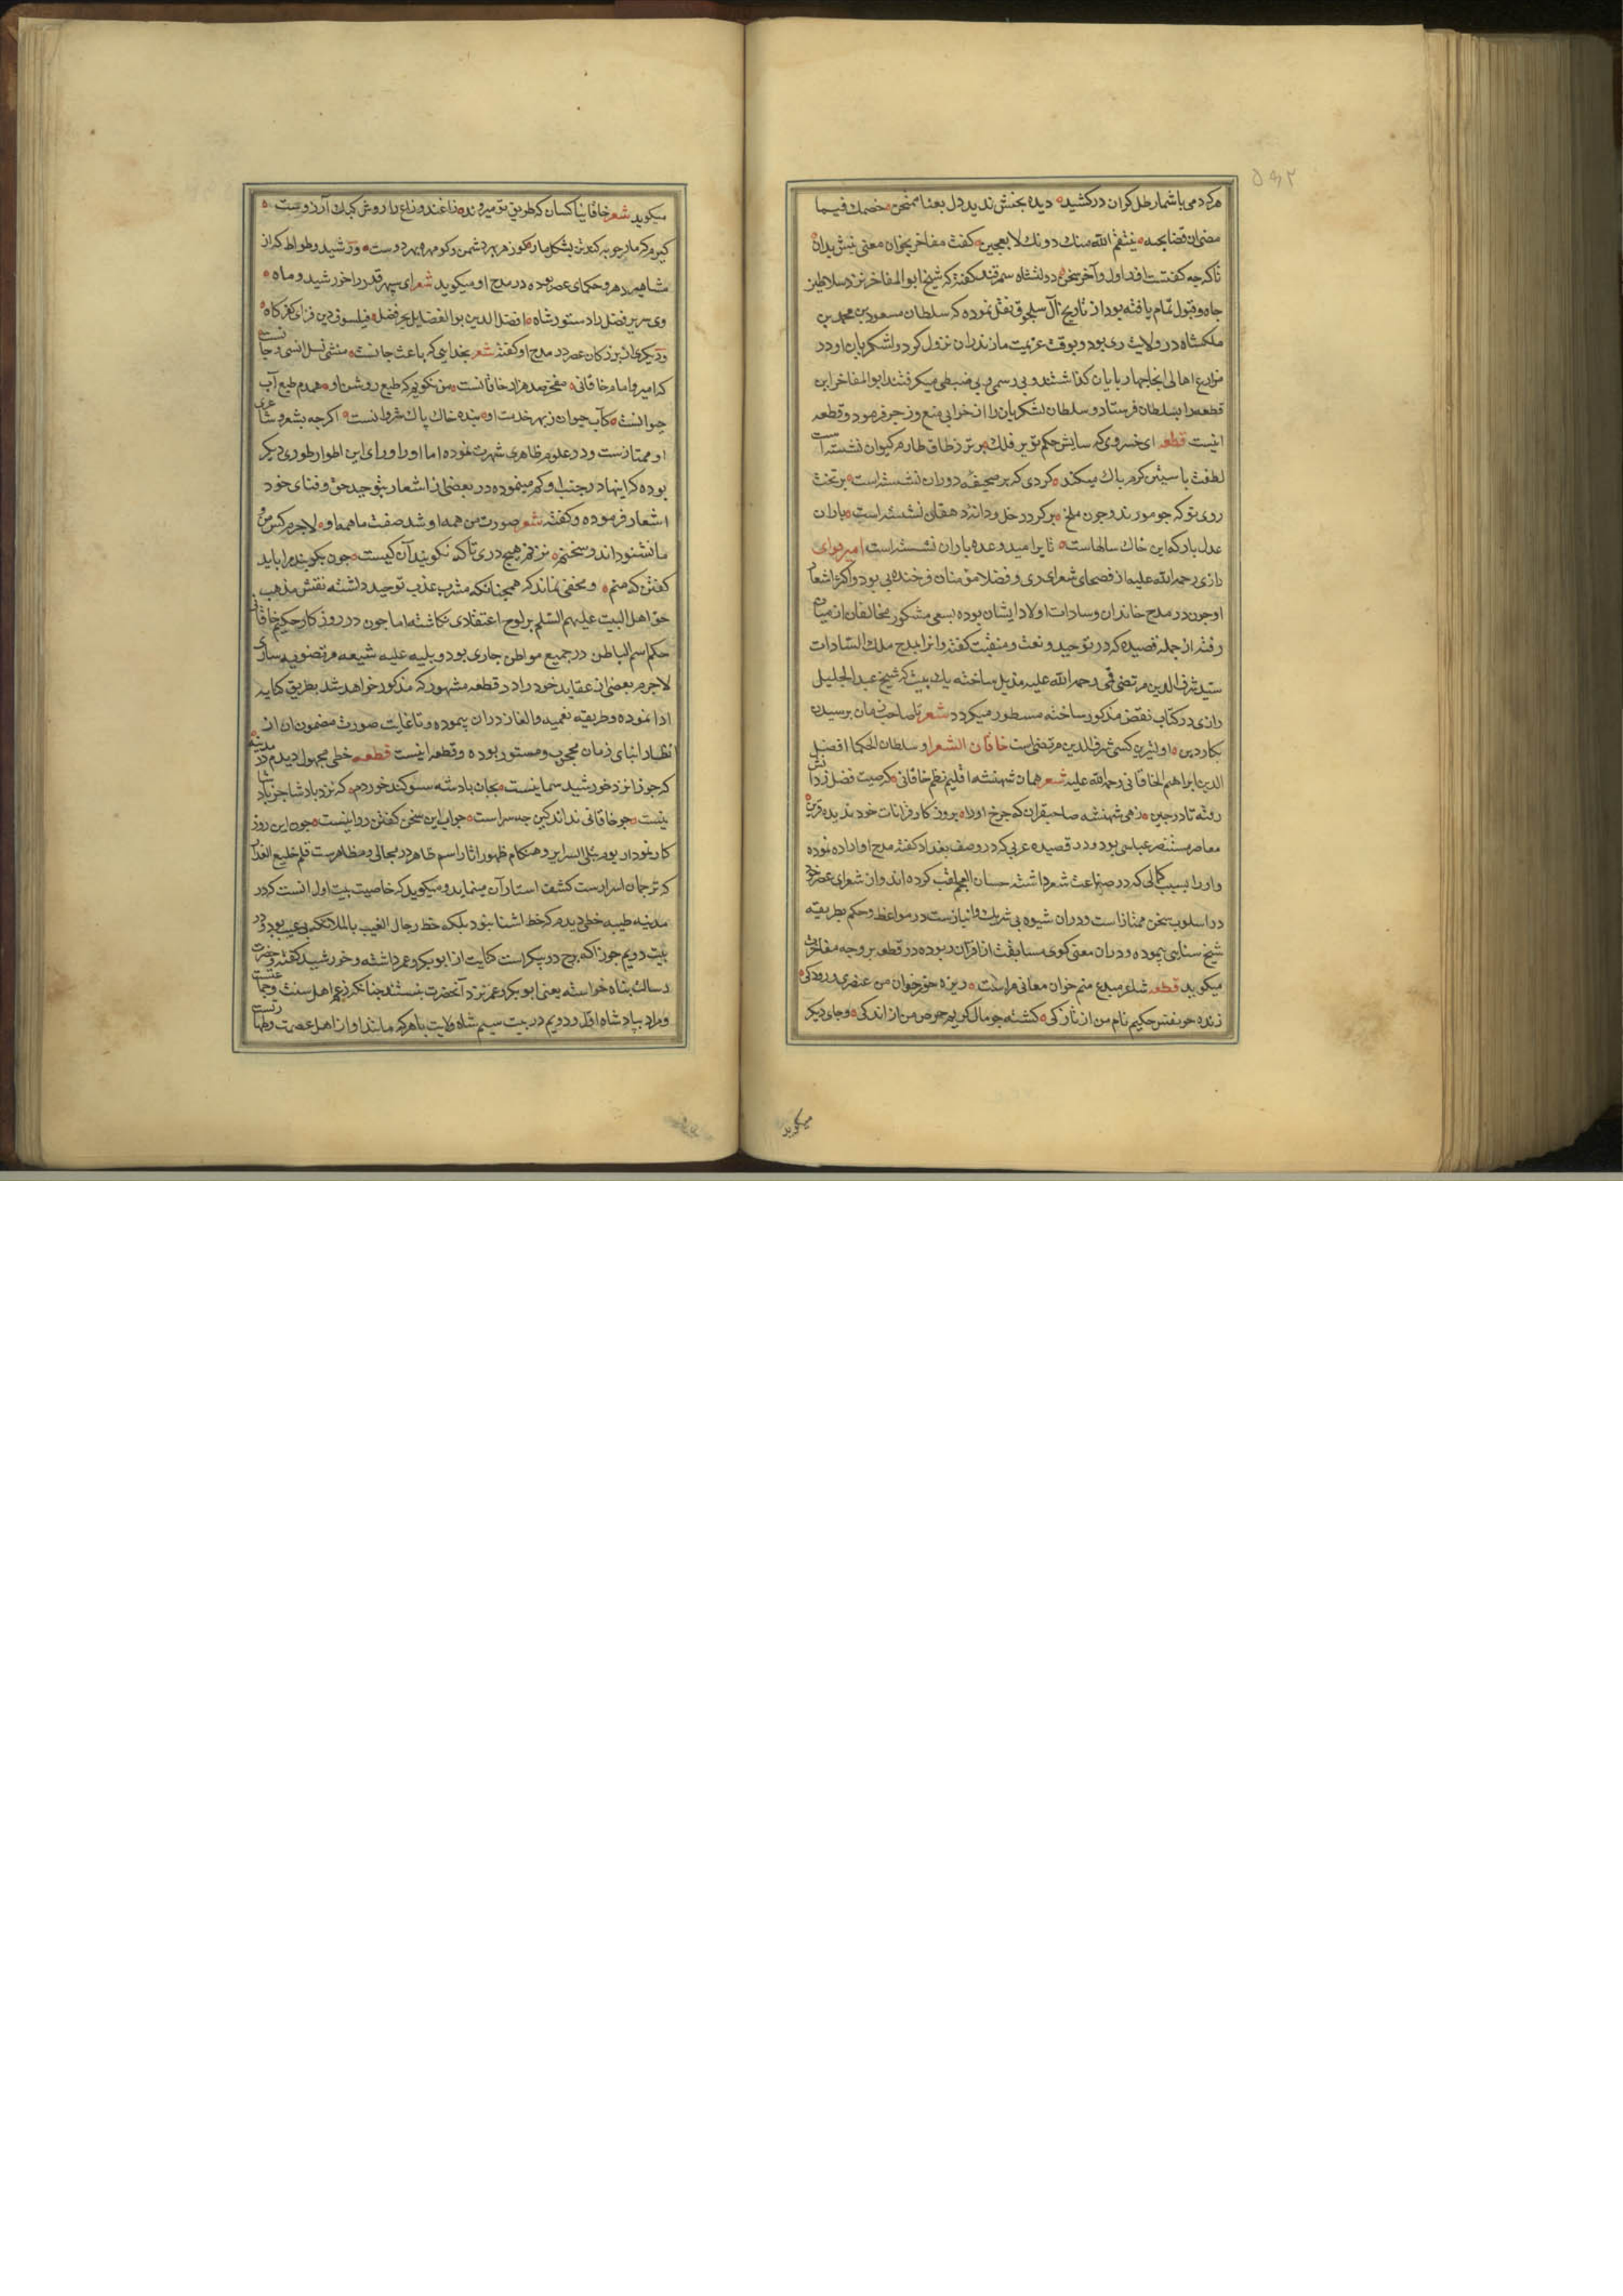 ۵۹۲
هر کرد می باشمار طل کران در کشیده دیده بخش ندید دل بعنا ممتحن خصمك فیما
مضی ان قضا بحبه ینتقم الله منك دونك لا یعجبن گفت مفاخر بخوان معنی نیش بدان
تا که چه گفتست او در اول و آخر سخن دولتشاه سمرقند گفته که شیخ ابوالمفاخر نزد سلاطین
جاه و قبول تمام یافته بود از تاریخ آل سلجوق نقل نموده که سلطان مسعود بن محمد بن
ملکشاه در ولایت ری بود و بوقت عزیمت مازندران نزول کرد و لشکریان او در
مزارع اهالی انجا چهارپایان گذاشتند و بی رسمی و بی ضبطی میکرفتند ابوالمفاخر این
قطعه را بسلطان فرستاد و سلطان لشکریان را از خرابی منع و زجر فرمود و قطعه
اینست قطعه ای خسروی که سایش حکم تو بر فلك برتر ز طاق طارم کیوان نشسته است
لطفت باستین کرم پاك میکند کردی که بر صحیفه دوران نشسته است بر تخت
روی تو که چو مورند و چون ملخ بر کرد دخل و دانه دهقان نشسته است باران
عدل بار که این خاك سالهاست تا بر امید وعده باران نشسته است امیر قوامی
رازی رحمه الله علیه از فصحای شعرای ری و فضلا مؤمنان فرخنده پی بود و اکثر اشعار
او چون در مدح خاندان و سادات اولاد ایشان بوده بسعی مشکور مخالفان از میان
رفته از جمله قصیده که در توحید و نعت و منقبت گفته و انرا بمدح ملك السادات
سید شرف الدین مرتضی قمی رحمه الله علیه مذیل ساخته یك بیت که شیخ عبد الجلیل
رازی در کتاب نقض مذکور ساخته مسطور میکردد شعر تا صاحب زمان برسیدن
بکار دین اولیترین کسی شرف الدین مرتضی است خاقان الشعرا و سلطان الحکما افضل
الدین ابراهیم الخاقانی رحمه الله علیه شعر همان شهنشه اقلیم نظم خاقانی که صیت فضل ز دانش
رفته تا در چین زهی شهنشه صاحبقران که چرخ او را بروزکار و قرانات خود ندیده قرین
معاصر مستنصر عباسی بود و در قصیده عربی که در وصف بغداد گفته مدح او اراده نموده
و او را بسبب کمالی که در صناعت شعر داشته حسان العجم لقب کرده اند و از شعرای عصر خود
در اسلوب سخن ممتاز است و در ان شیوه بی شریك و انباز است در مواعظ و حکم بطریقه
شیخ سنایی پیموده و در ان معنی کوی مسابقت از اقران ربوده در قطعه بر وجه مفاخرت
میکوید قطعه شاعر مبدع منم خوان معانی مراست ریزه خور خوان من عنصری و رودکی
زنده چو نفس حکیم نام من از تازکی کشته چو مال کریم حرص من از اندکی و جای دیکر
میکوید
میکوید شعر خاقانیا کسان که طریق تو میروند زاغند و زاغ را روش کبك آرزوست
کیرم که مار چوبه کند تن بشکل مار کو زهر بهر دشمن و کو مهره بهر دوست و رشید وطواط که از
مشاهیر دهر و حکمای عصر بوده در مدح او میکوید شعر ای سپهر قدر را خورشید و ماه
وی سریر فضل را دستور شاه افضل الدین بو الفضایل بحر فضل فیلسوف دین فزای کفر کاه
و دیکری از بزرکان عصر در مدح او گفته شعر بخدایی که باعث جانست منشی نسل انسی و جانیست
که امیر و امام خاقانی مفخر صد هزار خاقانست من نکویم که طبع روشن او همدم طبع آب
حیوانست کآب حیوان ز بهر خدمت او بنده خاك پاك شروانست اکرچه بشعر و شاعری
او ممتازست و در علوم ظاهری شهرت نموده اما او را ورای این اطوار طوری دیکر
بوده که اینها در جنب او کم مینموده در بعضی از اشعار بتوحید حق و فنای خود
اشعار فرموده و گفته شعر صورت من همه او شد صفت ما همه او لاجرم کس من و
ما نشنود اند و سخنم نزنم هیچ دری تا که نکویند آن کیست چون بکویند مرا باید
گفتن که منم و مخفی نماند که همچنانکه مشرب عذب توحید داشته نقش مذهب
حق اهل البیت علیهم السلام بر لوح اعتقاد می نکاشته اما چون در روزکار حکیم خاقانی
حکم اسم الباطن در جمیع مواطن جاری بود و بلیه علیه شیعه مرتضویه ساری
لاجرم بعضی از عقاید خود را در قطعه مشهور که مذکور خواهد شد بطریق کنایه
ادا نموده و طریقه تعمیه و الغاز در ان پیموده و تا غایت صورت مضمون ان از
انظار ابنای زمان محجوب و مستور بوده و قطعه اینست قطعه خطی مجهول دیدم در مدینه
که جوزا نزد خورشید سما نیست بجان پادشه سوکند خوردم که نزد پادشا جز پادشا
نیست چو خاقانی نداند کین چه سر است جواب این سخن گفتن روا نیست چون این روز
کار نمودار یوم تبلی السرایر و هنکام ظهور اثار اسم ظاهر در مجالی و مظاهرست قلم خلیع العذار
که ترجمان اسرارست کشف استار آن مینماید و میکوید که خاصیت بیت اول انست که در
مدینه طیبه خطی دیدم که خط اشنا نبود بلکه خط رجال الغیب یا ملائکه بی عیب بود و در
بیت دویم جوزا که برج دو پیکر است کنایت از ابو بکر و عمر داشته و خورشید گفته و حضرت
رسالت پناه خواسته یعنی ابو بکر و عمر نزد آنحضرت نیستند چنانکه زعم اهل سنت و جماعتست
و مراد بپادشاه اول و دویم در بیت سیم شاه ولایت یا هر که مانند او از اهل عصمت و طهارتست